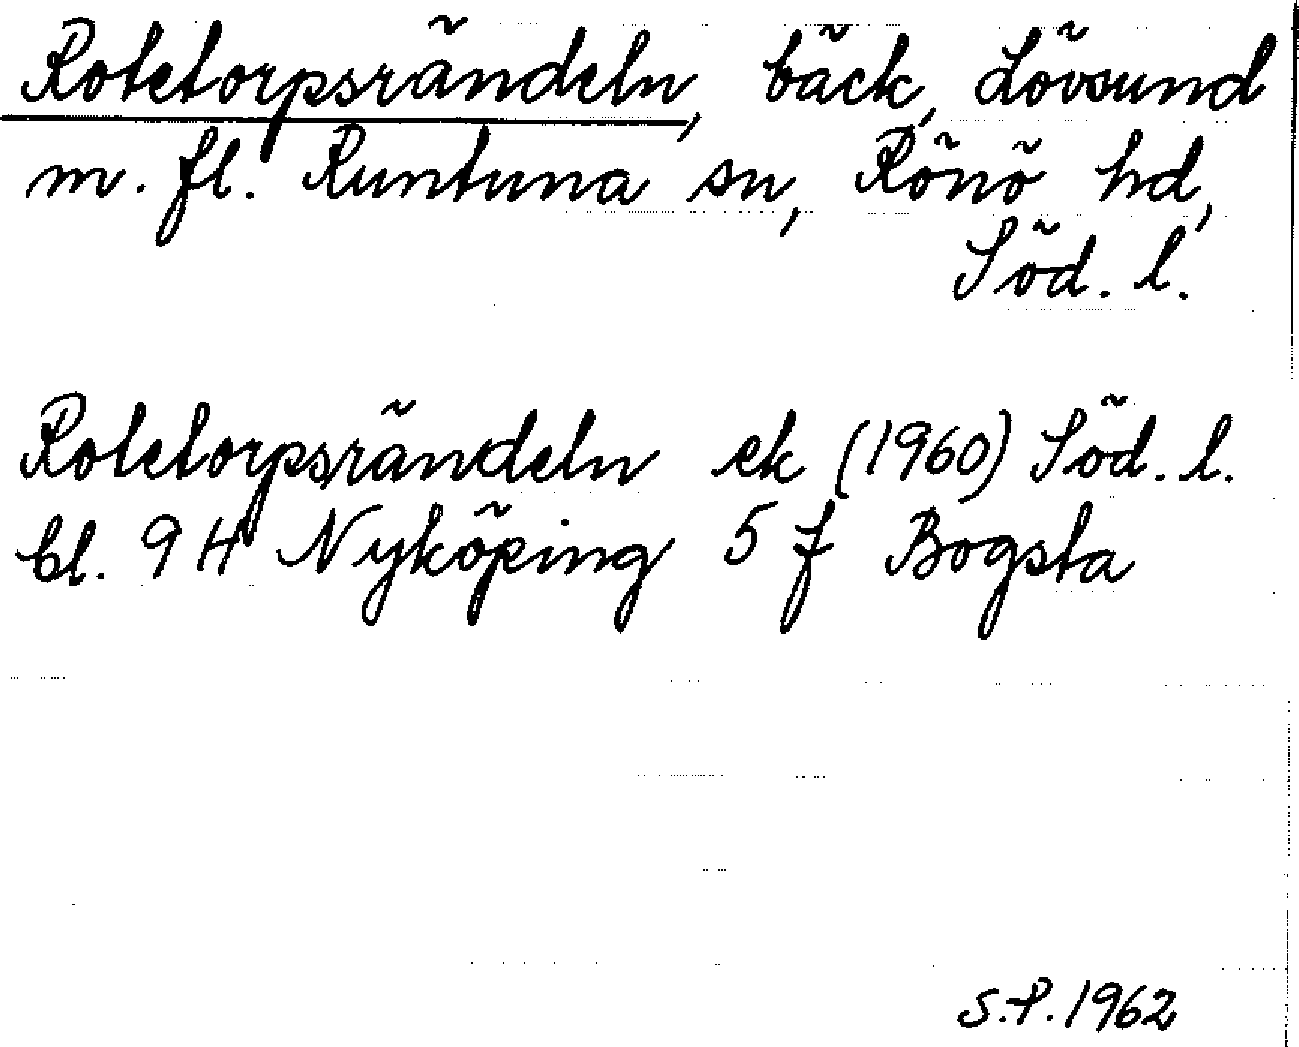 Rotetorpsrändeln, bäck, Lövsund
m. fl. Runtuna sn, Rönö hd,
Söd. l.
Rotetorpsrändeln ek (1960) Söd. l.
bl. 9 H Nyköping 5 f Bogsta
S.P. 1962